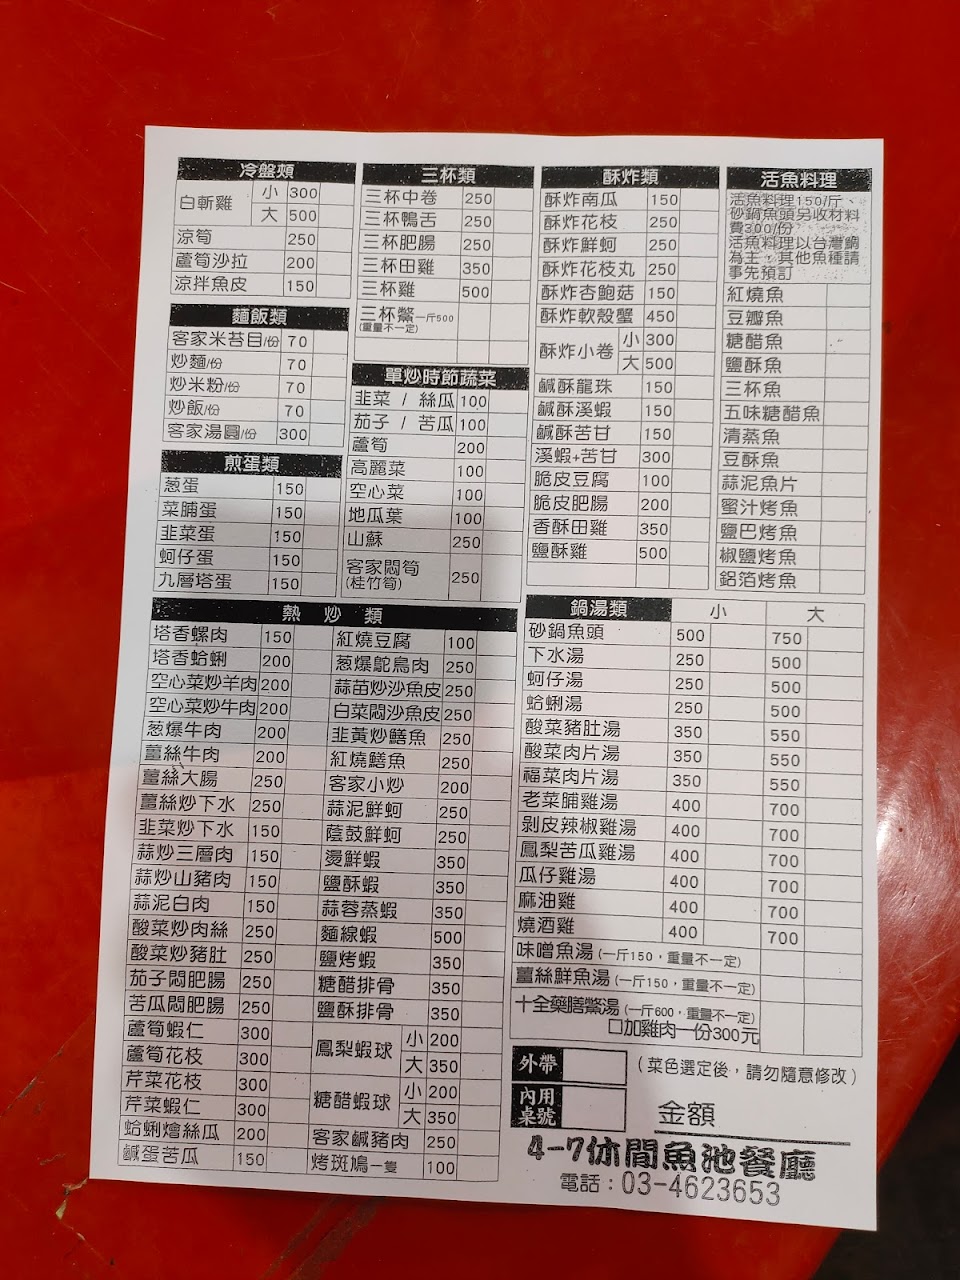 冷盤類
白斬雞 小 300
大 500
涼筍 250
蘆筍沙拉 200
涼拌魚皮 150
麵飯類
客家米苔目/份 70
炒麵/份 70
炒米粉/份 70
炒飯/份 70
客家湯圓/份 300
煎蛋類
葱蛋 150
菜脯蛋 150
韭菜蛋 150
蚵仔蛋 150
九層塔蛋 150
三杯類
三杯中卷 250
三杯鴨舌 250
三杯肥腸 250
三杯田雞 350
三杯雞 500
三杯鱉一斤500
(重量不一定)
單炒時節蔬菜
韭菜 / 絲瓜 100
茄子 / 苦瓜 100
蘆筍 200
高麗菜 100
空心菜 100
地瓜葉 100
山蘇 250
客家悶筍 250
(桂竹筍)
酥炸類
酥炸南瓜 150
酥炸花枝 250
酥炸鮮蚵 250
酥炸花枝丸 250
酥炸杏鮑菇 150
酥炸軟殼蟹 450
酥炸小卷 小 300
大 500
鹹酥龍珠 150
鹹酥溪蝦 150
鹹酥苦甘 150
溪蝦+苦甘 300
脆皮豆腐 100
脆皮肥腸 200
香酥田雞 350
鹽酥雞 500
活魚料理
活魚料理150/斤、
砂鍋魚頭另收材料
費300/份
活魚料理以台灣鯛
為主，其他魚種請
事先預訂
紅燒魚
豆瓣魚
糖醋魚
鹽酥魚
三杯魚
五味糖醋魚
清蒸魚
豆酥魚
蒜泥魚片
蜜汁烤魚
鹽巴烤魚
椒鹽烤魚
鋁箔烤魚
熱 炒 類
塔香螺肉 150 紅燒豆腐 100
塔香蛤蜊 200 葱爆鴕鳥肉 250
空心菜炒羊肉 200 蒜苗炒沙魚皮 250
空心菜炒牛肉 200 白菜悶沙魚皮 250
葱爆牛肉 200 韭黃炒鱔魚 250
薑絲牛肉 200 紅燒鱔魚 250
薑絲大腸 250 客家小炒 200
薑絲炒下水 250 蒜泥鮮蚵 250
韭菜炒下水 150 蔭鼓鮮蚵 250
蒜炒三層肉 150 燙鮮蝦 350
蒜炒山豬肉 150 鹽酥蝦 350
蒜泥白肉 150 蒜蓉蒸蝦 350
酸菜炒肉絲 250 麵線蝦 500
酸菜炒豬肚 250 鹽烤蝦 350
茄子悶肥腸 250 糖醋排骨 350
苦瓜悶肥腸 250 鹽酥排骨 350
蘆筍蝦仁 300 鳳梨蝦球 小 200
蘆筍花枝 300 大 350
芹菜花枝 300 糖醋蝦球 小 200
芹菜蝦仁 300 大 350
蛤蜊燴絲瓜 200 客家鹹豬肉 250
鹹蛋苦瓜 150 烤斑鳩一隻 100
鍋湯類 小 大
砂鍋魚頭 500 750
下水湯 250 500
蚵仔湯 250 500
蛤蜊湯 250 500
酸菜豬肚湯 350 550
酸菜肉片湯 350 550
福菜肉片湯 350 550
老菜脯雞湯 400 700
剝皮辣椒雞湯 400 700
鳳梨苦瓜雞湯 400 700
瓜仔雞湯 400 700
麻油雞 400 700
燒酒雞 400 700
味噌魚湯 (一斤150，重量不一定)
薑絲鮮魚湯 (一斤150，重量不一定)
十全藥膳鱉湯 (一斤600，重量不一定)
□加雞肉一份300元
外帶 (菜色選定後，請勿隨意修改)
內用
桌號
金額
4-7休閒魚池餐廳
電話：03-4623653